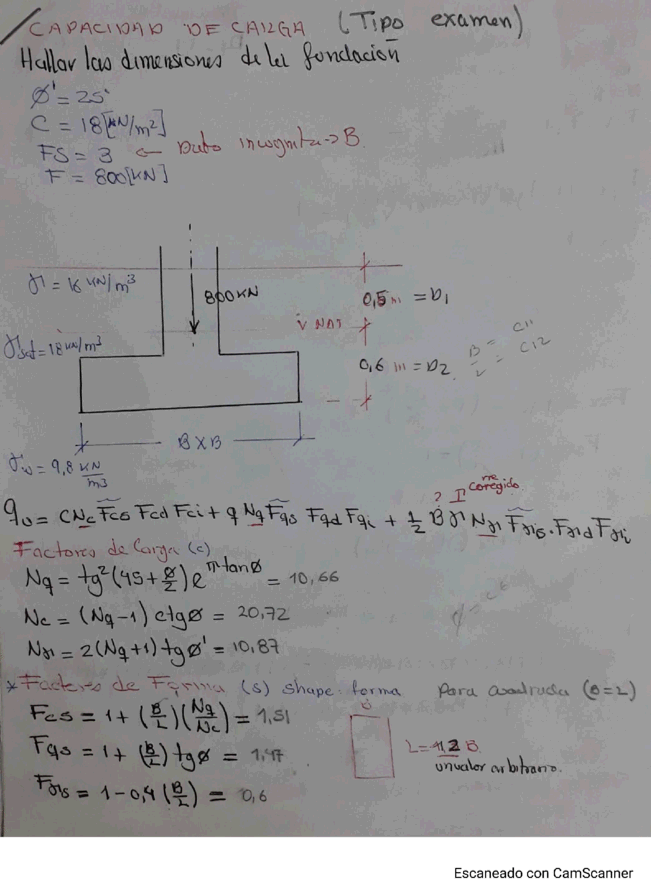 CAPACIDAD DE CARGA (Tipo examen)
Hallar las dimensiones de la fundación
Ø' = 25°
C = 18 [kN/m²]
FS = 3 ← Dato incognita → B
F = 800 [kN]
γ = 16 kN/m³
800 KN
0,5 m = D₁
γsat = 18 kN/m³
0,6 m = D₂
B x B
γw = 9,8 kN/m³
qu = CNc Fcs Fcd Fci + q Nq Fqs Fqd Fqi + 1/2 B γ Nγ Fγs . Fγd Fγi
? Corregido
Factores de Carga (c)
Nq = tg²(45 + Ø/2) e^π tanØ = 10,66
Nc = (Nq - 1) ctgØ = 20,72
Nγ = 2(Nq + 1) tgØ' = 10,87
* Factores de Forma (s) shape. forma para cuadrada (B = L)
Fcs = 1 + (B/L)(Nq/Nc) = 1,51
Fqs = 1 + (B/L) tgØ = 1,47
un valor arbitrario.
Fγs = 1 - 0,4 (B/L) = 0,6
Escaneado con CamScanner